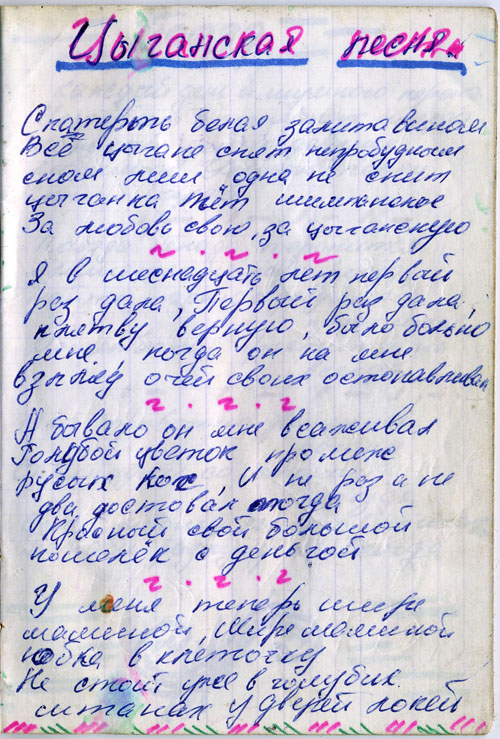 Цыганская песня.
Скатерть белая залита вином
Всё цыгане спят непробудным
сном лиш одна не спит
цыганка пёт шимпанское
За любовь свою, за цыганскую
я в шеснадцать лет первый
раз дала, Первый раз дала,
клятву верную, было больно
мне, когда он на мне
взгляд очей своих остонавливал
А бывало он мне всаживал
Голубой цветок промеж
русых кос, И не раз а не
два доставал тогда
Красный свой большой
кошелёк с деньгой
У меня теперь шире
маминой, Шире маминой
юбка в клеточку
Не стоит уже в голубих
штанах у дверей локей